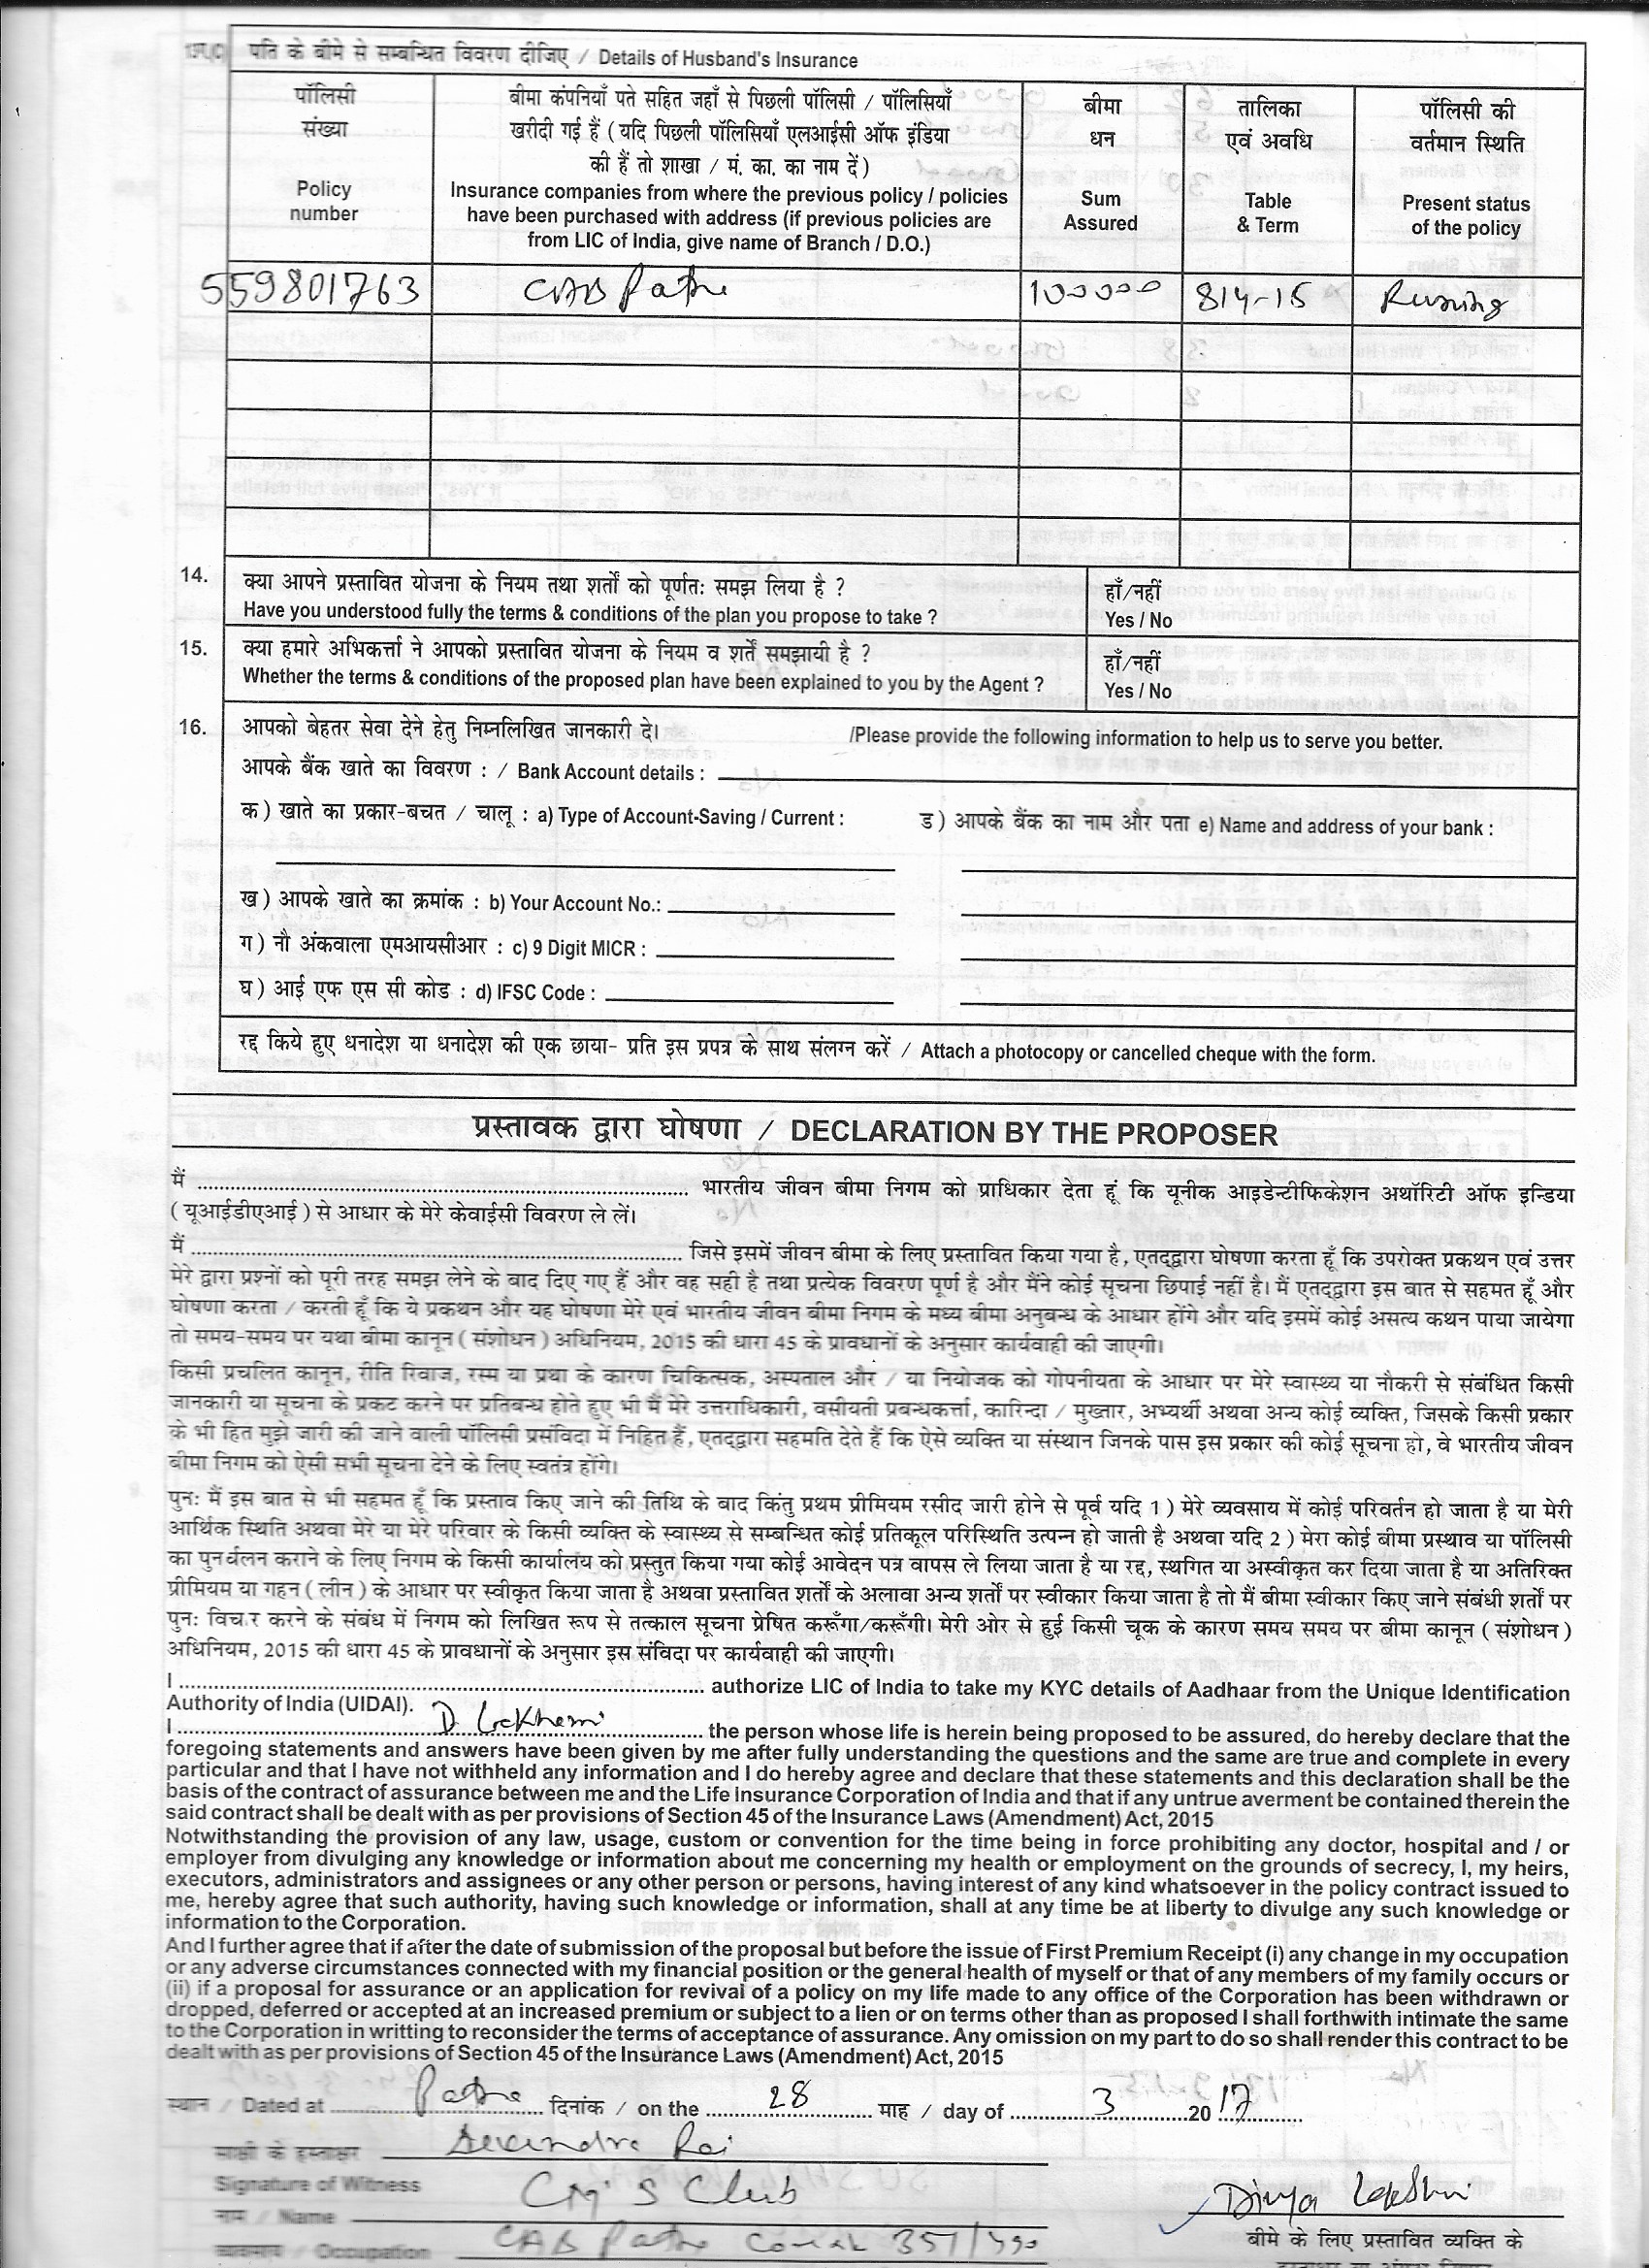 पति के बीमे से सम्बन्धित विवरण दीजिए / Details of Husband's Insurance
पॉलिसी संख्या
Policy number
बीमा कंपनियाँ पते सहित जहाँ से पिछली पॉलिसी / पॉलिसियाँ
खरीदी गई हैं ( यदि पिछली पॉलिसियाँ एलआईसी ऑफ इंडिया
की हैं तो शाखा / मं. का. का नाम दें )
Insurance companies from where the previous policy / policies
have been purchased with address (if previous policies are
from LIC of India, give name of Branch / D.O.)
बीमा धन
Sum Assured
तालिका एवं अवधि
Table & Term
पॉलिसी की वर्तमान स्थिति
Present status of the policy
559801763 CAB Patna 100000 814-15 Running
14. क्या आपने प्रस्तावित योजना के नियम तथा शर्तों को पूर्णतः समझ लिया है ? हाँ/नहीं
Have you understood fully the terms & conditions of the plan you propose to take ? Yes / No
15. क्या हमारे अभिकर्त्ता ने आपको प्रस्तावित योजना के नियम व शर्तें समझायी है ? हाँ/नहीं
Whether the terms & conditions of the proposed plan have been explained to you by the Agent ? Yes / No
16. आपको बेहतर सेवा देने हेतु निम्नलिखित जानकारी दे। /Please provide the following information to help us to serve you better.
आपके बैंक खाते का विवरण : / Bank Account details :
क ) खाते का प्रकार-बचत / चालू : a) Type of Account-Saving / Current : ड ) आपके बैंक का नाम और पता e) Name and address of your bank :
ख ) आपके खाते का क्रमांक : b) Your Account No.:
ग ) नौ अंकवाला एमआयसीआर : c) 9 Digit MICR :
घ ) आई एफ एस सी कोड : d) IFSC Code :
रद्द किये हुए धनादेश या धनादेश की एक छाया- प्रति इस प्रपत्र के साथ संलग्न करें / Attach a photocopy or cancelled cheque with the form.
प्रस्तावक द्वारा घोषणा / DECLARATION BY THE PROPOSER
मैं ........ भारतीय जीवन बीमा निगम को प्राधिकार देता हूं कि यूनीक आइडेन्टीफिकेशन अथॉरिटी ऑफ इन्डिया
( यूआईडीएआई ) से आधार के मेरे केवाईसी विवरण ले लें।
मैं ........ जिसे इसमें जीवन बीमा के लिए प्रस्तावित किया गया है, एतद्द्वारा घोषणा करता हूँ कि उपरोक्त प्रकथन एवं उत्तर
मेरे द्वारा प्रश्नों को पूरी तरह समझ लेने के बाद दिए गए हैं और वह सही है तथा प्रत्येक विवरण पूर्ण है और मैंने कोई सूचना छिपाई नहीं है। मैं एतद्द्वारा इस बात से सहमत हूँ और
घोषणा करता / करती हूँ कि ये प्रकथन और यह घोषणा मेरे एवं भारतीय जीवन बीमा निगम के मध्य बीमा अनुबन्ध के आधार होंगे और यदि इसमें कोई असत्य कथन पाया जायेगा
तो समय-समय पर यथा बीमा कानून ( संशोधन ) अधिनियम, 2015 की धारा 45 के प्रावधानों के अनुसार कार्यवाही की जाएगी।
किसी प्रचलित कानून, रीति रिवाज, रस्म या प्रथा के कारण चिकित्सक, अस्पताल और / या नियोजक को गोपनीयता के आधार पर मेरे स्वास्थ्य या नौकरी से संबंधित किसी
जानकारी या सूचना के प्रकट करने पर प्रतिबन्ध होते हुए भी मैं मेरे उत्तराधिकारी, वसीयती प्रबन्धकर्त्ता, कारिन्दा / मुख्तार, अभ्यर्थी अथवा अन्य कोई व्यक्ति, जिसके किसी प्रकार
के भी हित मुझे जारी की जाने वाली पॉलिसी प्रसंविदा में निहित हैं, एतद्द्वारा सहमति देते हैं कि ऐसे व्यक्ति या संस्थान जिनके पास इस प्रकार की कोई सूचना हो, वे भारतीय जीवन
बीमा निगम को ऐसी सभी सूचना देने के लिए स्वतंत्र होंगे।
पुनः मैं इस बात से भी सहमत हूँ कि प्रस्ताव किए जाने की तिथि के बाद किंतु प्रथम प्रीमियम रसीद जारी होने से पूर्व यदि 1 ) मेरे व्यवसाय में कोई परिवर्तन हो जाता है या मेरी
आर्थिक स्थिति अथवा मेरे या मेरे परिवार के किसी व्यक्ति के स्वास्थ्य से सम्बन्धित कोई प्रतिकूल परिस्थिति उत्पन्न हो जाती है अथवा यदि 2 ) मेरा कोई बीमा प्रस्थाव या पॉलिसी
का पुनर्चलन कराने के लिए निगम के किसी कार्यालय को प्रस्तुत किया गया कोई आवेदन पत्र वापस ले लिया जाता है या रद्द, स्थगित या अस्वीकृत कर दिया जाता है या अतिरिक्त
प्रीमियम या गहन ( लीन ) के आधार पर स्वीकृत किया जाता है अथवा प्रस्तावित शर्तों के अलावा अन्य शर्तों पर स्वीकार किया जाता है तो मैं बीमा स्वीकार किए जाने संबंधी शर्तों पर
पुनः विचार करने के संबंध में निगम को लिखित रूप से तत्काल सूचना प्रेषित करूँगा/करूँगी। मेरी ओर से हुई किसी चूक के कारण समय समय पर बीमा कानून ( संशोधन )
अधिनियम, 2015 की धारा 45 के प्रावधानों के अनुसार इस संविदा पर कार्यवाही की जाएगी।
I ........ authorize LIC of India to take my KYC details of Aadhaar from the Unique Identification
Authority of India (UIDAI).
I ........ the person whose life is herein being proposed to be assured, do hereby declare that the
foregoing statements and answers have been given by me after fully understanding the questions and the same are true and complete in every
particular and that I have not withheld any information and I do hereby agree and declare that these statements and this declaration shall be the
basis of the contract of assurance between me and the Life Insurance Corporation of India and that if any untrue averment be contained therein the
said contract shall be dealt with as per provisions of Section 45 of the Insurance Laws (Amendment) Act, 2015
Notwithstanding the provision of any law, usage, custom or convention for the time being in force prohibiting any doctor, hospital and / or
employer from divulging any knowledge or information about me concerning my health or employment on the grounds of secrecy, I, my heirs,
executors, administrators and assignees or any other person or persons, having interest of any kind whatsoever in the policy contract issued to
me, hereby agree that such authority, having such knowledge or information, shall at any time be at liberty to divulge any such knowledge or
information to the Corporation.
And I further agree that if after the date of submission of the proposal but before the issue of First Premium Receipt (i) any change in my occupation
or any adverse circumstances connected with my financial position or the general health of myself or that of any members of my family occurs or
(ii) if a proposal for assurance or an application for revival of a policy on my life made to any office of the Corporation has been withdrawn or
dropped, deferred or accepted at an increased premium or subject to a lien or on terms other than as proposed I shall forthwith intimate the same
to the Corporation in writting to reconsider the terms of acceptance of assurance. Any omission on my part to do so shall render this contract to be
dealt with as per provisions of Section 45 of the Insurance Laws (Amendment) Act, 2015
स्थान / Dated at Patna दिनांक / on the 28 माह / day of 3 2017
साक्षी के हस्ताक्षर
Signature of Witness
CM'S Club
नाम / Name
CAB Patna
व्यवसाय / Occupation
बीमे के लिए प्रस्तावित व्यक्ति के